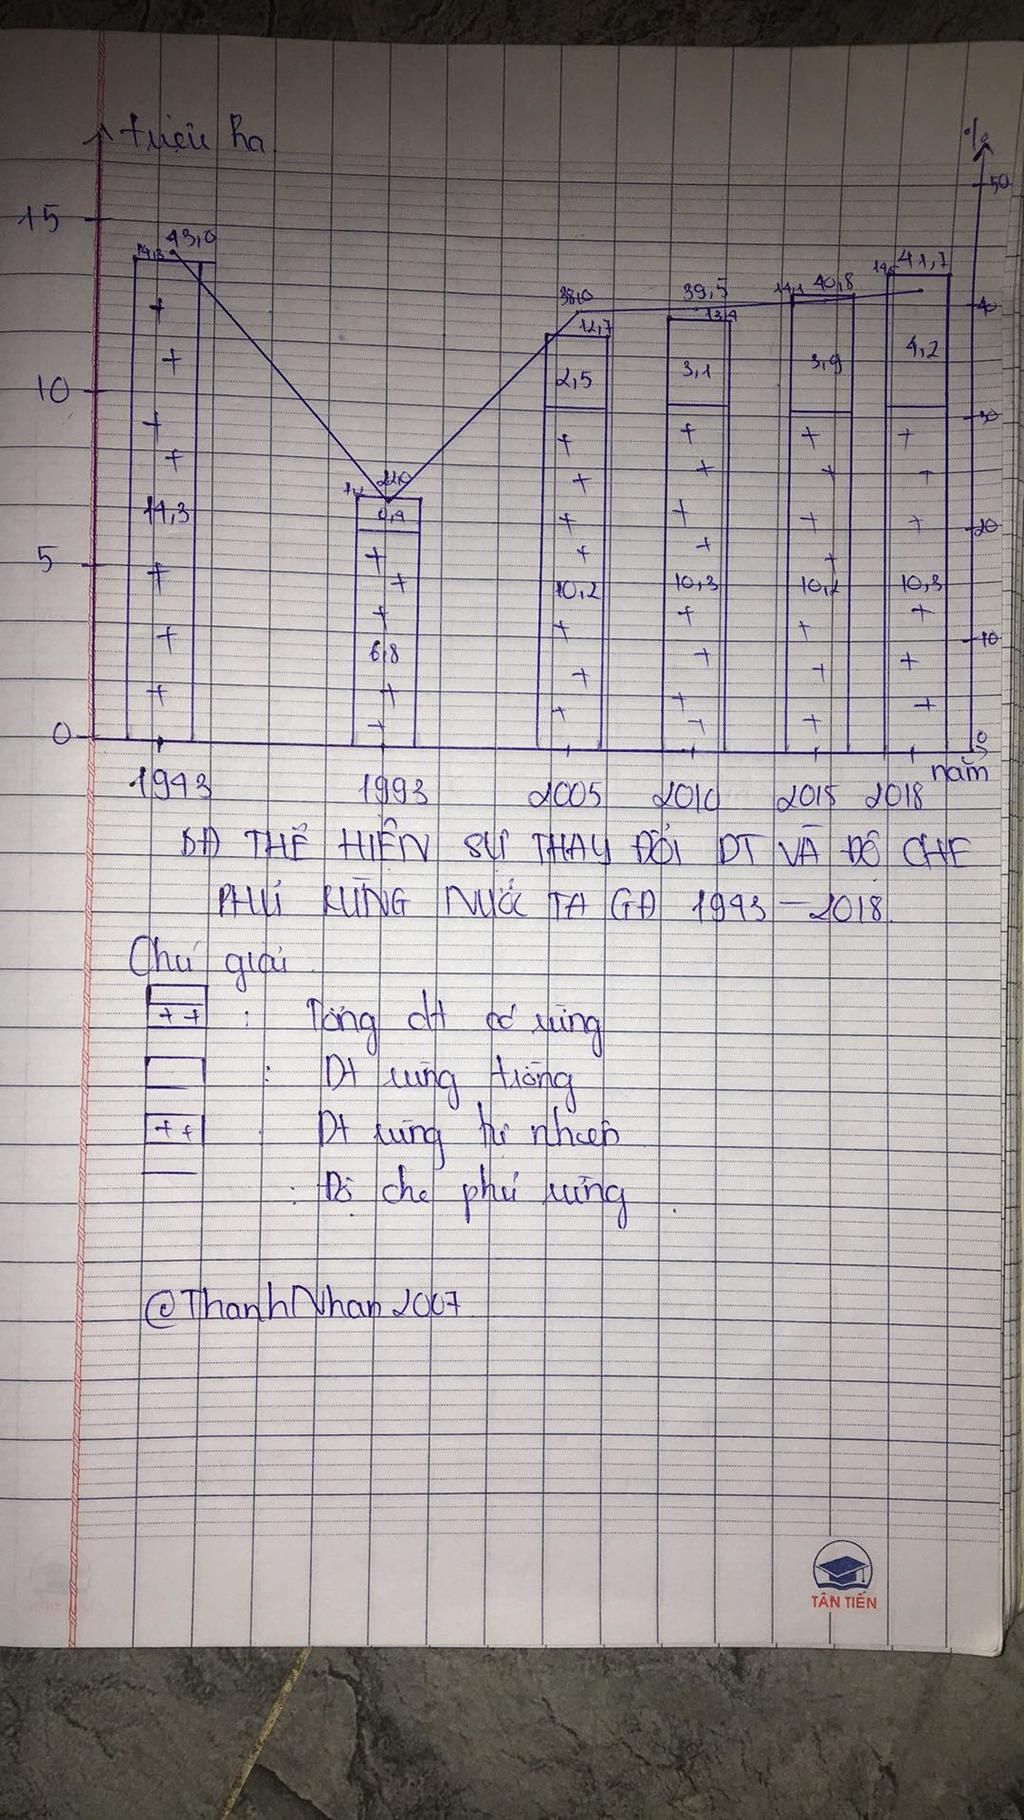 triệu ha
%
50
15
43,0
14,3
41,7
40,8
14,1
39,5
13,4
38,0
12,7
40
4,2
3,9
3,1
2,5
10
30
22,0
0,4
14,3
20
5
10,2
10,3
10,2
10,3
6,8
10
0
0
năm
1943 1993 2005 2010 2015 2018
BĐ THỂ HIỆN SỰ THAY ĐỔI DT VÀ ĐỘ CHE
PHỦ RỪNG NƯỚC TA GĐ 1943 - 2018
Chú giải
++ : Tổng dt có rừng
: Dt rừng trồng
++ Dt rừng tự nhiên
: Độ che phủ rừng
@ThanhNhan2007
TÂN TIẾN